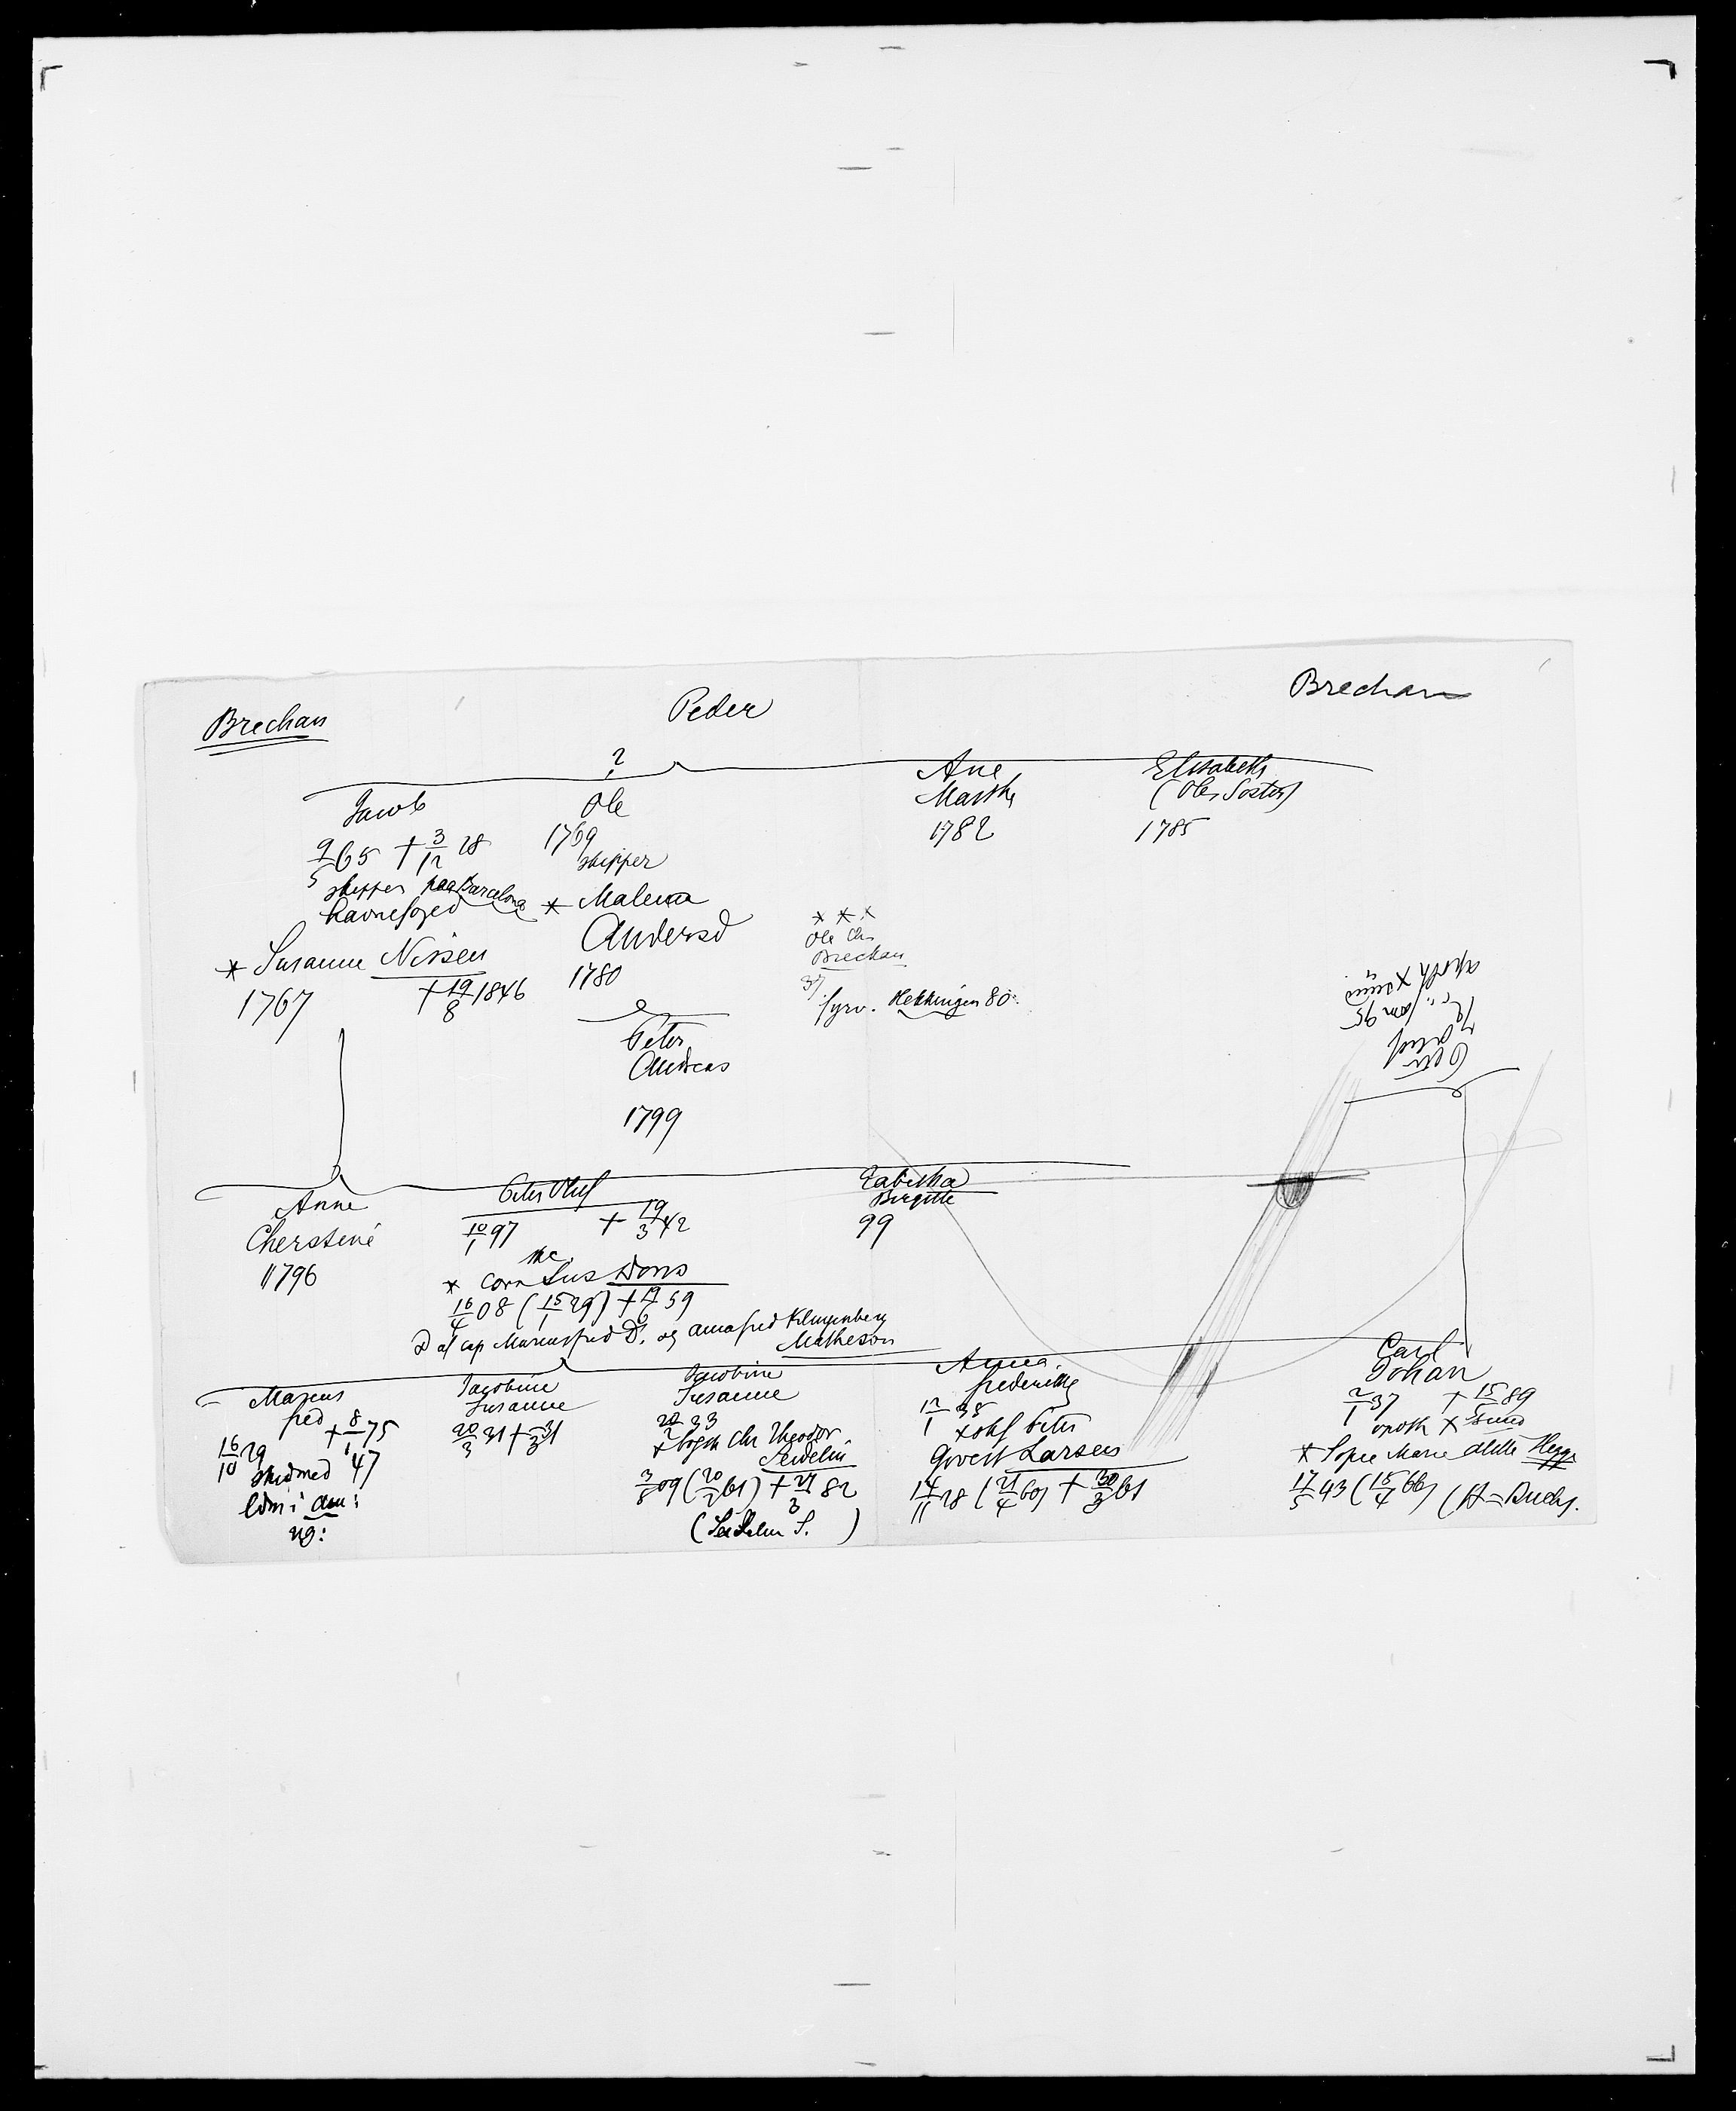 Brechan
Peder
Brechan
?
Jacob
9/5 65 + 3/12 28
skipper paa Barcelona
havnefoged
* Susanne Nissen
1767 + 19/8 1846
Ole
1769
skipper
* Malena
Andersd
1780
Peter
Andreas
1799
Ane
Marthe
1782
Elisabeth
(Oles Søster)
1785
* * *
Ole Chr
Brechan
37
fyrv. Hekkingen 80
Peter
Oluf
Anne
Cherstine
1796
Peter Oluf
10/1 97 + 19/3 42
* Cornelius Dons
16/4 08 (15/1 29) + 19/6 59
D af cap Marcus fred D. og Anna fred Klingenberg
Matheson
Tabitha
Birgitte
99
Marcus
fred
+ 8/1 75
16/10 29
stud med 47
Jacobine
Susanne
20/3 31 + 31
Jacobine
Susanne
20/2 33
Chr Theodor
Seidelin
3/8 09 (20/2 61) + 27/3 82
Anna
frederikke
12/1 35
Peter
Govert Larsen
14/11 28 (21/4 60) + 30/3 61
Carl
Johan
2/1 37 + 15/5 89
apoth × sund
* Sofie Marie Hegge
17/5 43 (18/4 66)